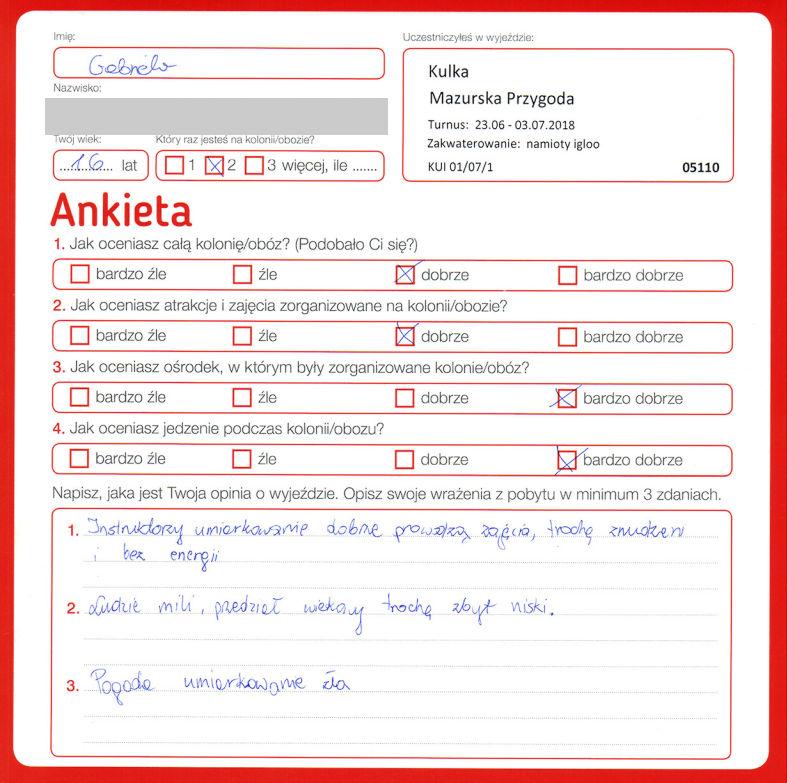 Imię:
Gabriela
Uczestniczyłeś w wyjeździe:
Kulka
Mazurska Przygoda
Turnus: 23.06 - 03.07.2018
Zakwaterowanie: namioty igloo
KUI 01/07/1 05110
Nazwisko:
Twój wiek: Który raz jesteś na kolonii/obozie?
16 lat 1 2 3 więcej, ile .......
Ankieta
1. Jak oceniasz całą kolonię/obóz? (Podobało Ci się?)
bardzo źle źle dobrze bardzo dobrze
2. Jak oceniasz atrakcje i zajęcia zorganizowane na kolonii/obozie?
bardzo źle źle dobrze bardzo dobrze
3. Jak oceniasz ośrodek, w którym były zorganizowane kolonie/obóz?
bardzo źle źle dobrze bardzo dobrze
4. Jak oceniasz jedzenie podczas kolonii/obozu?
bardzo źle źle dobrze bardzo dobrze
Napisz, jaka jest Twoja opinia o wyjeździe. Opisz swoje wrażenia z pobytu w minimum 3 zdaniach.
1. Instruktorzy umiarkowanie dobrze prowadzą zajęcia, trochę znudzeni
i bez energii
2. Ludzie mili, przedział wiekowy trochę zbyt niski.
3. Pogoda umiarkowanie zła